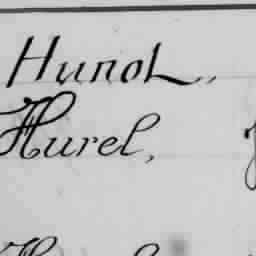 Hunot,
Hurel,